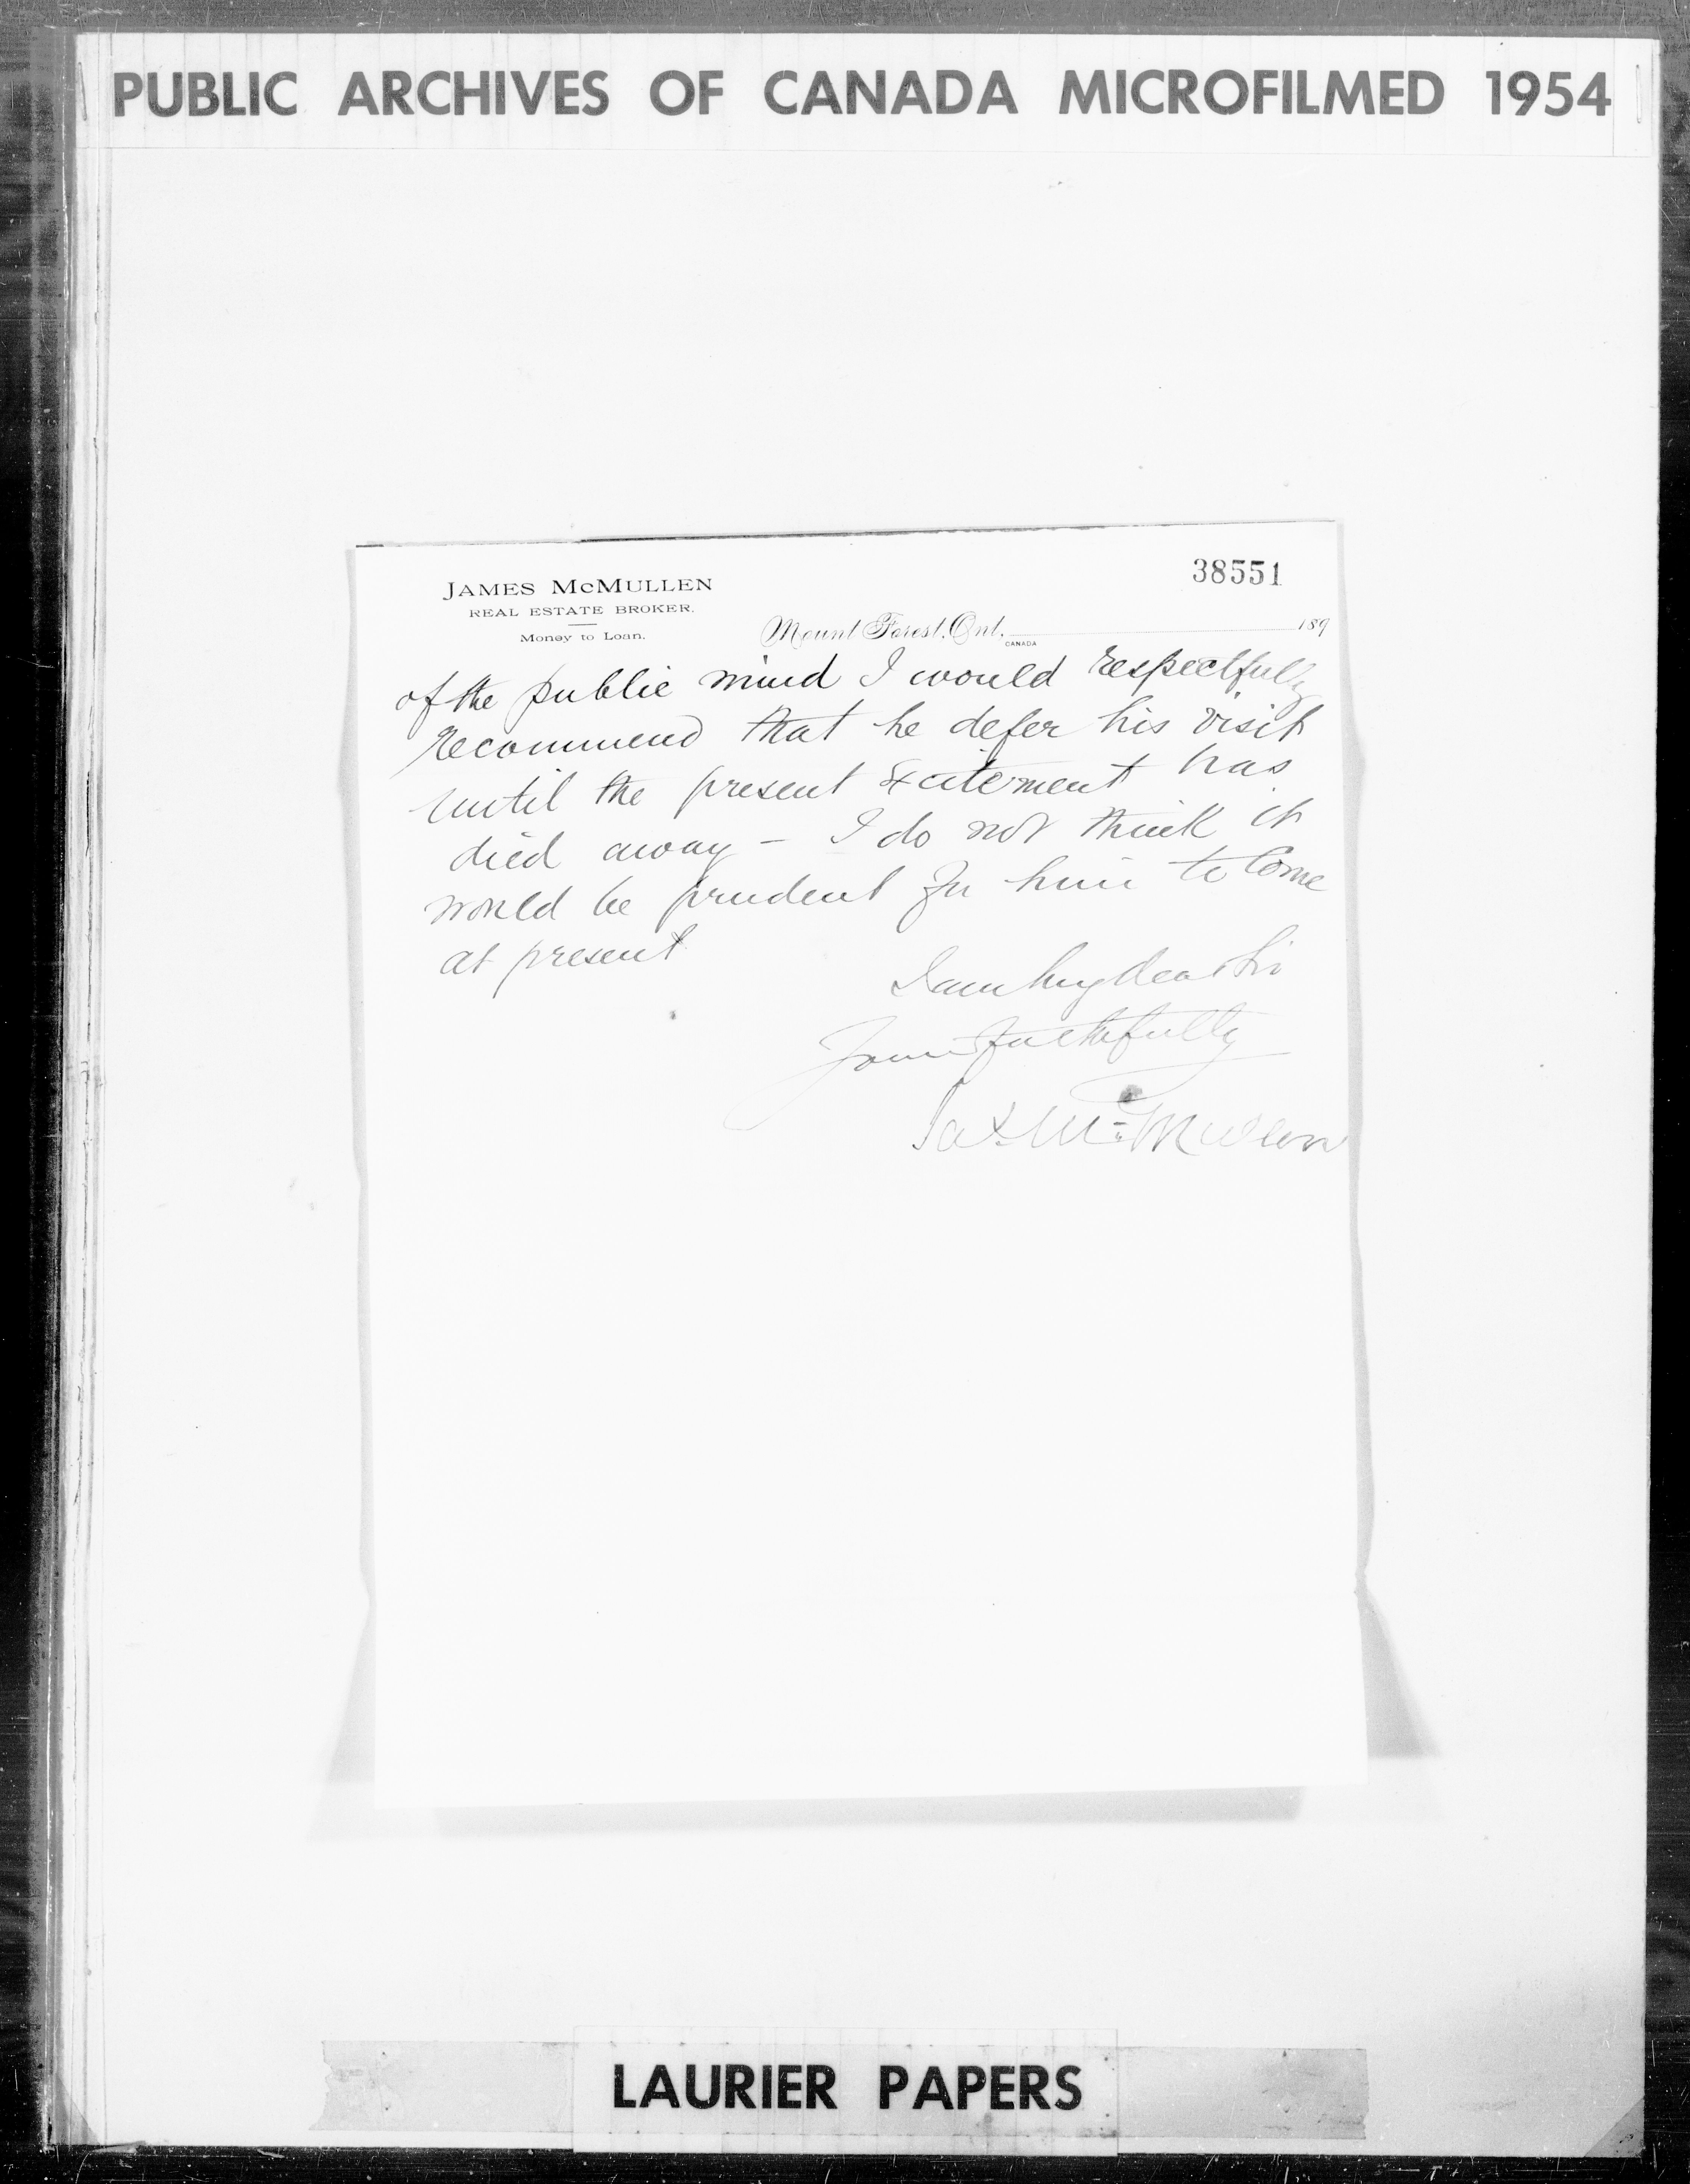 PUBLIC ARCHIVES OF CANADA MICROFILMED 1954
38551
JAMES McMULLEN
REAL ESTATE BROKER.
Money to Loan.
Mount Forest, Ont. 189
CANADA
of the public mind I would respectfully
recommend that he defer his visit
until the present excitement has
died away - I do not think it
would be prudent for him to come
at present
I am my dear Sir
Yours faithfully
Jas. McMullen
LAURIER PAPERS